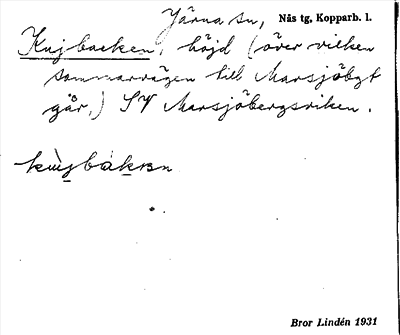 Järna sn, Nås tg, Kopparb. l.
Kujbacken, höjd (över vilken
sommarvägen till Marsjöbgt
går,) SV Marsjöbergsviken.
Bror Lindén 1931